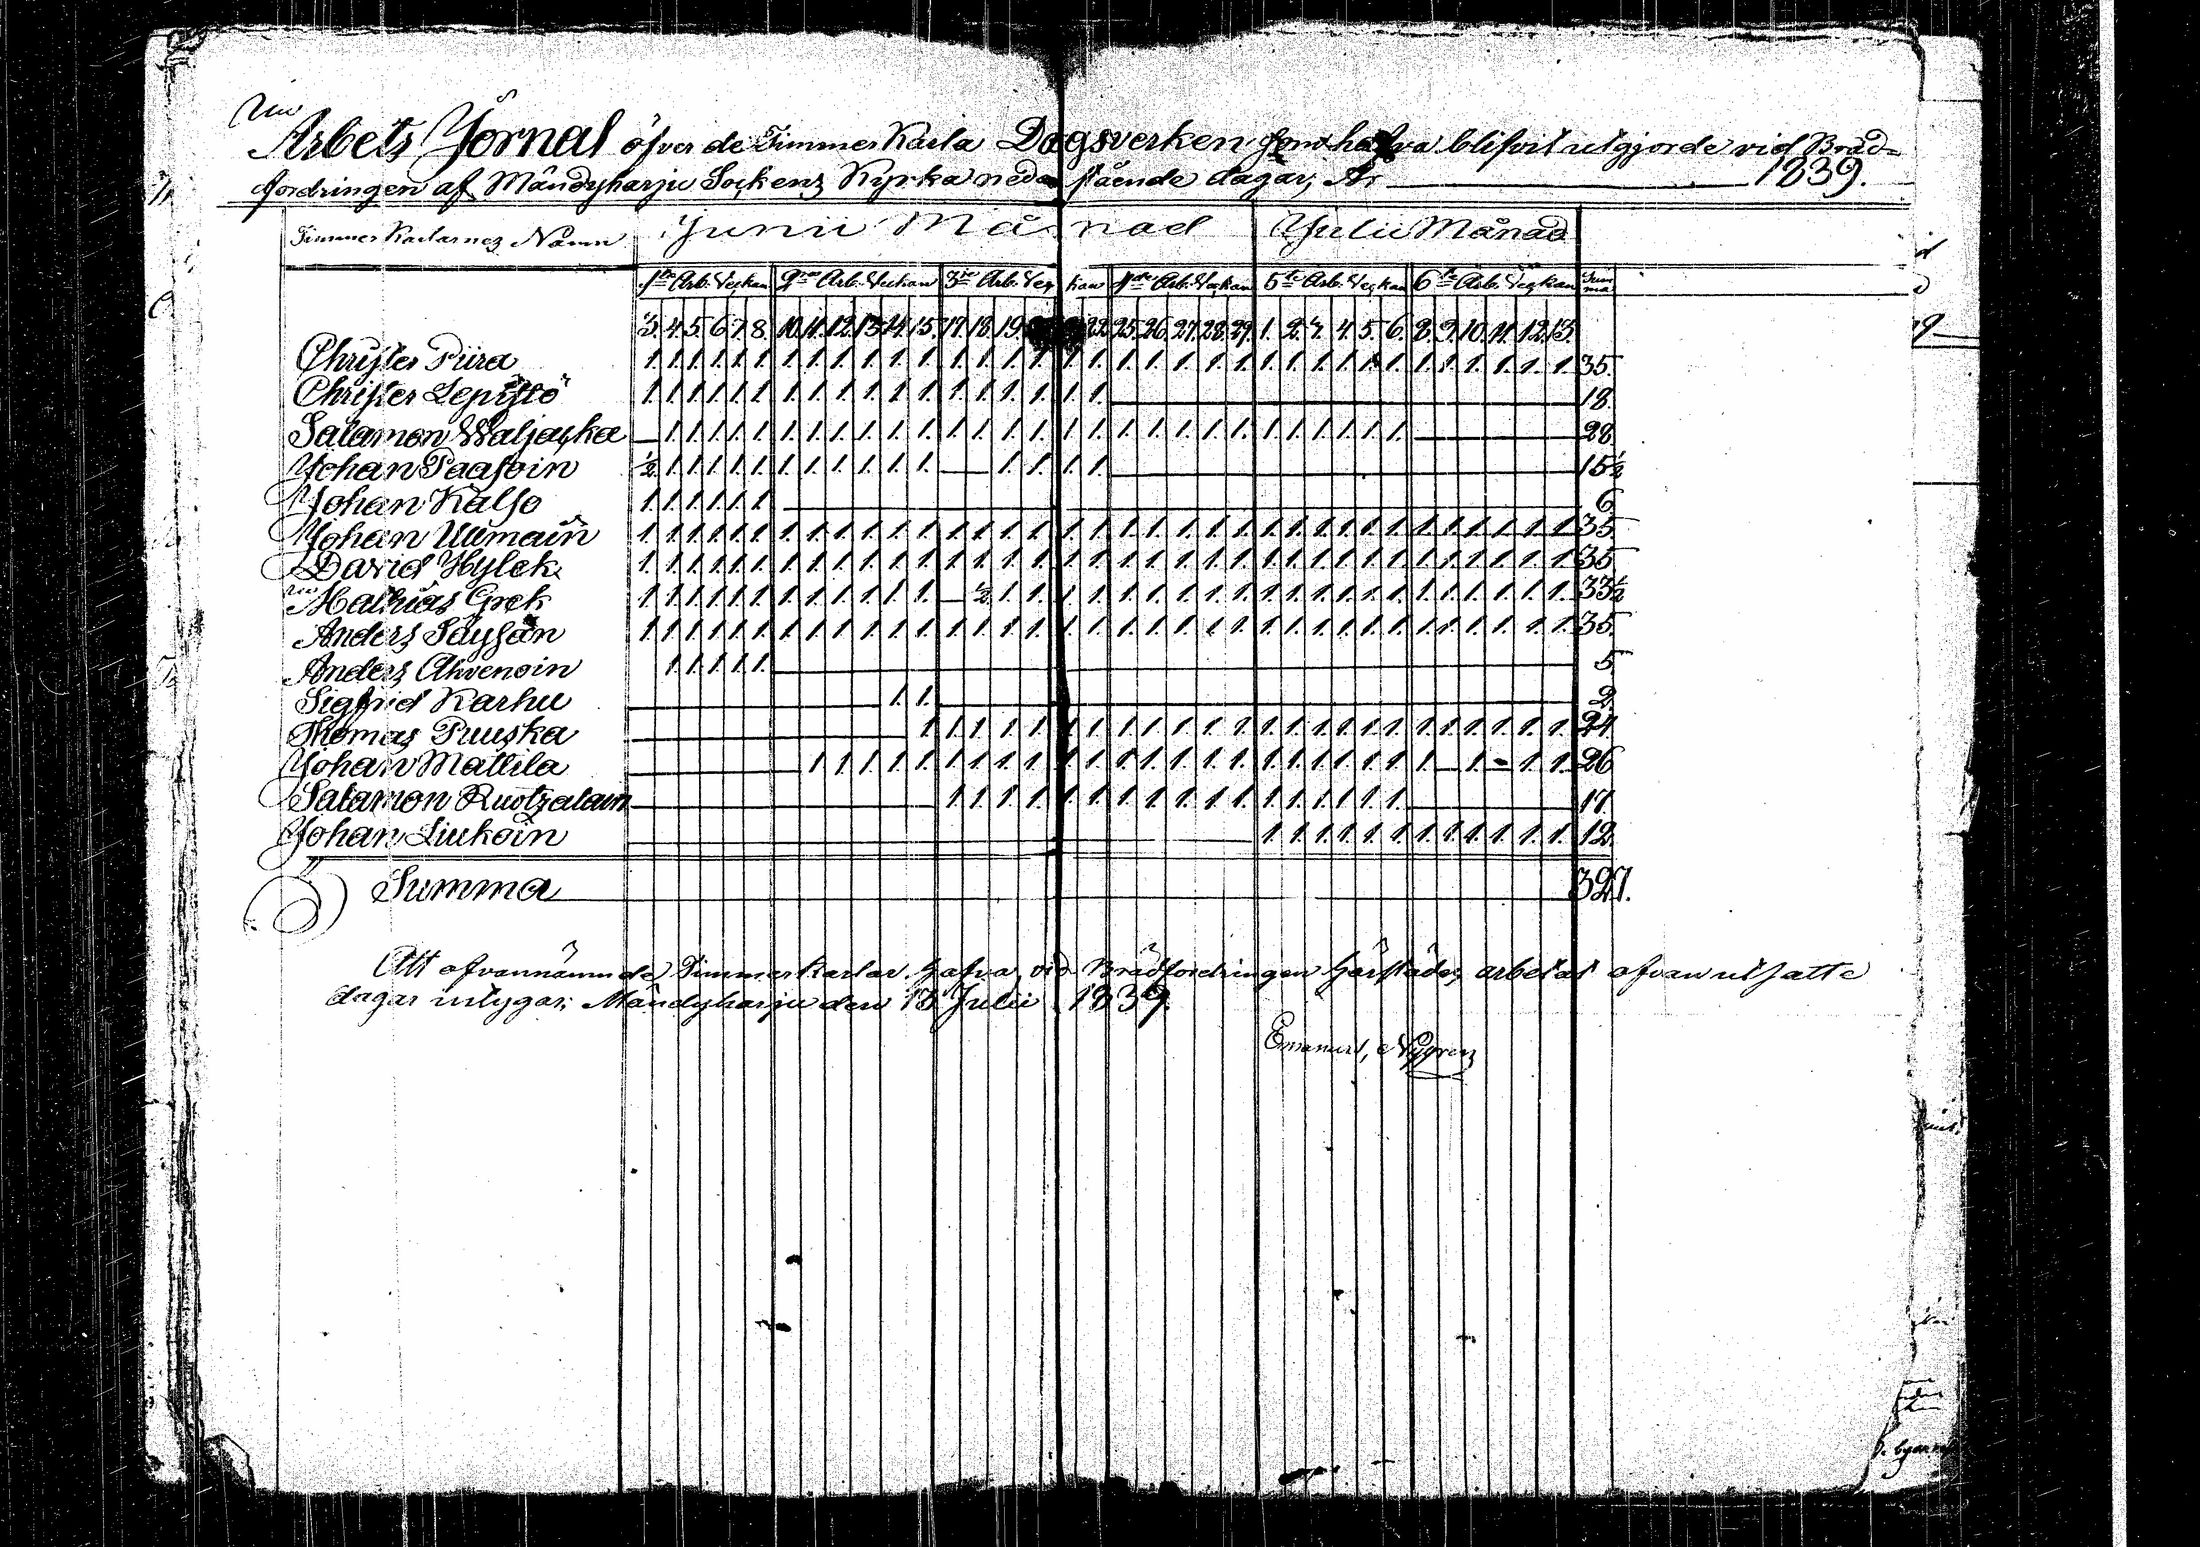 Arbets Jornal öfver de Timmer Karla Dagsverken som hafva blifvit utgjorde vid Bräd-
fordringen af Mändyharju Sockens Kyrka nedan stående dagar, År 1839.
Timmer Karlarnes Namn Junii Månad Julii Månad
1sta Arb. Veckan 2dra Arb. Veckan 3die Arb. Veckan 4de Arb. Veckan 5te Arb. Veckan 6te Arb. Veckan Summa
3. 4. 5. 6. 7. 8. 10. 11. 12. 13. 14. 15. 17. 18. 19. 22. 25. 26. 27. 28. 29. 1. 2. 3. 4. 5. 6. 8. 9. 10. 11. 12. 13.
Christer Piira 1. 1. 1. 1. 1. 1. 1. 1. 1. 1. 1. 1. 1. 1. 1. 1. 1. 1. 1. 1. 1. 1. 1. 1. 1. 1. 1. 1. 1. 1. 1. 1. 1. 1. 1. 35.
Christer Lepistö 1. 1. 1. 1. 1. 1. 1. 1. 1. 1. 1. 1. 1. 1. 1. 1. 1. 1. 18.
Salamon Waljacka 1. 1. 1. 1. 1. 1. 1. 1. 1. 1. 1. 1. 1. 1. 1. 1. 1. 1. 1. 1. 1. 1. 1. 1. 1. 1. 1. 1. 28
Johan Paasoin ½ 1. 1. 1. 1. 1. 1. 1. 1. 1. 1. 1. 1. 1. 1. 1. 15½
Johan Kalso 1. 1. 1. 1. 1. 1. 6
Johan Ulmain 1. 1. 1. 1. 1. 1. 1. 1. 1. 1. 1. 1. 1. 1. 1. 1. 1. 1. 1. 1. 1. 1. 1. 1. 1. 1. 1. 1. 1. 1. 1. 1. 1. 1. 1. 35
David Hylek 1. 1. 1. 1. 1. 1. 1. 1. 1. 1. 1. 1. 1. 1. 1. 1. 1. 1. 1. 1. 1. 1. 1. 1. 1. 1. 1. 1. 1. 1. 1. 1. 1. 1. 1. 35
Mathias Grek 1. 1. 1. 1. 1. 1. 1. 1. 1. 1. 1. 1. ½ 1. 1. 1. 1. 1. 1. 1. 1. 1. 1. 1. 1. 1. 1. 1. 1. 1. 1. 1. 1. 1. 33½
Anders Säysän 1. 1. 1. 1. 1. 1. 1. 1. 1. 1. 1. 1. 1. 1. 1. 1. 1. 1. 1. 1. 1. 1. 1. 1. 1. 1. 1. 1. 1. 1. 1. 1. 1. 1. 1. 35.
Anders Ahvenoin 1. 1. 1. 1. 1. 5
Sigfrid Karhu 1. 1. 2.
Thomas Puuska 1. 1. 1. 1. 1. 1. 1. 1. 1. 1. 1. 1. 1. 1. 1. 1. 1. 1. 1. 1. 1. 1. 1. 1. 24.
Johan Mattila 1. 1. 1. 1. 1. 1. 1. 1. 1. 1. 1. 1. 1. 1. 1. 1. 1. 1. 1. 1. 1. 1. 1. 1. - 1. 1. 26
Salamon Ruotzalain 1. 1. 1. 1. 1. 1. 1. 1. 1. 1. 1. 1. 1. 1. 1. 1. 1. 17.
Johan Liukoin 1. 1. 1. 1. 1. 1. 1. 1. 1. 1. 1. 1. 12.
Summa 327.
Att ofvannämnde Timmerkarlar hafva vid Brädfordringen härstädes arbetat ofvan utsatte
dagar intygar; Mändyharju den 13 Julii 1839.
Emanuel, Nygren